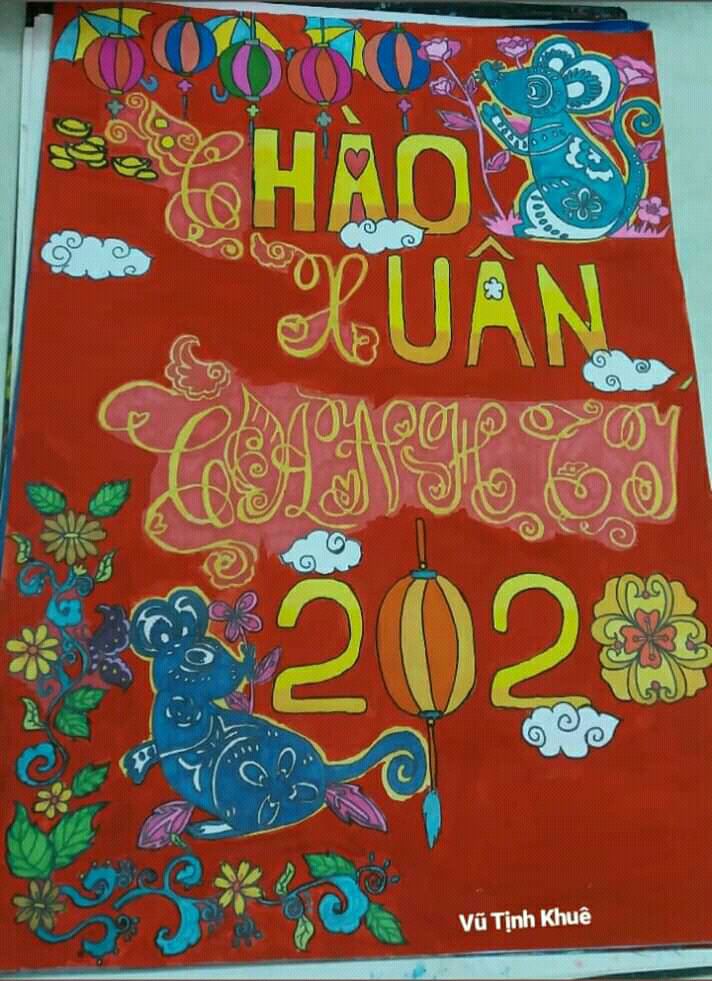 CHÀO
XUÂN
CANH TÝ
2020
Vũ Tịnh Khuê